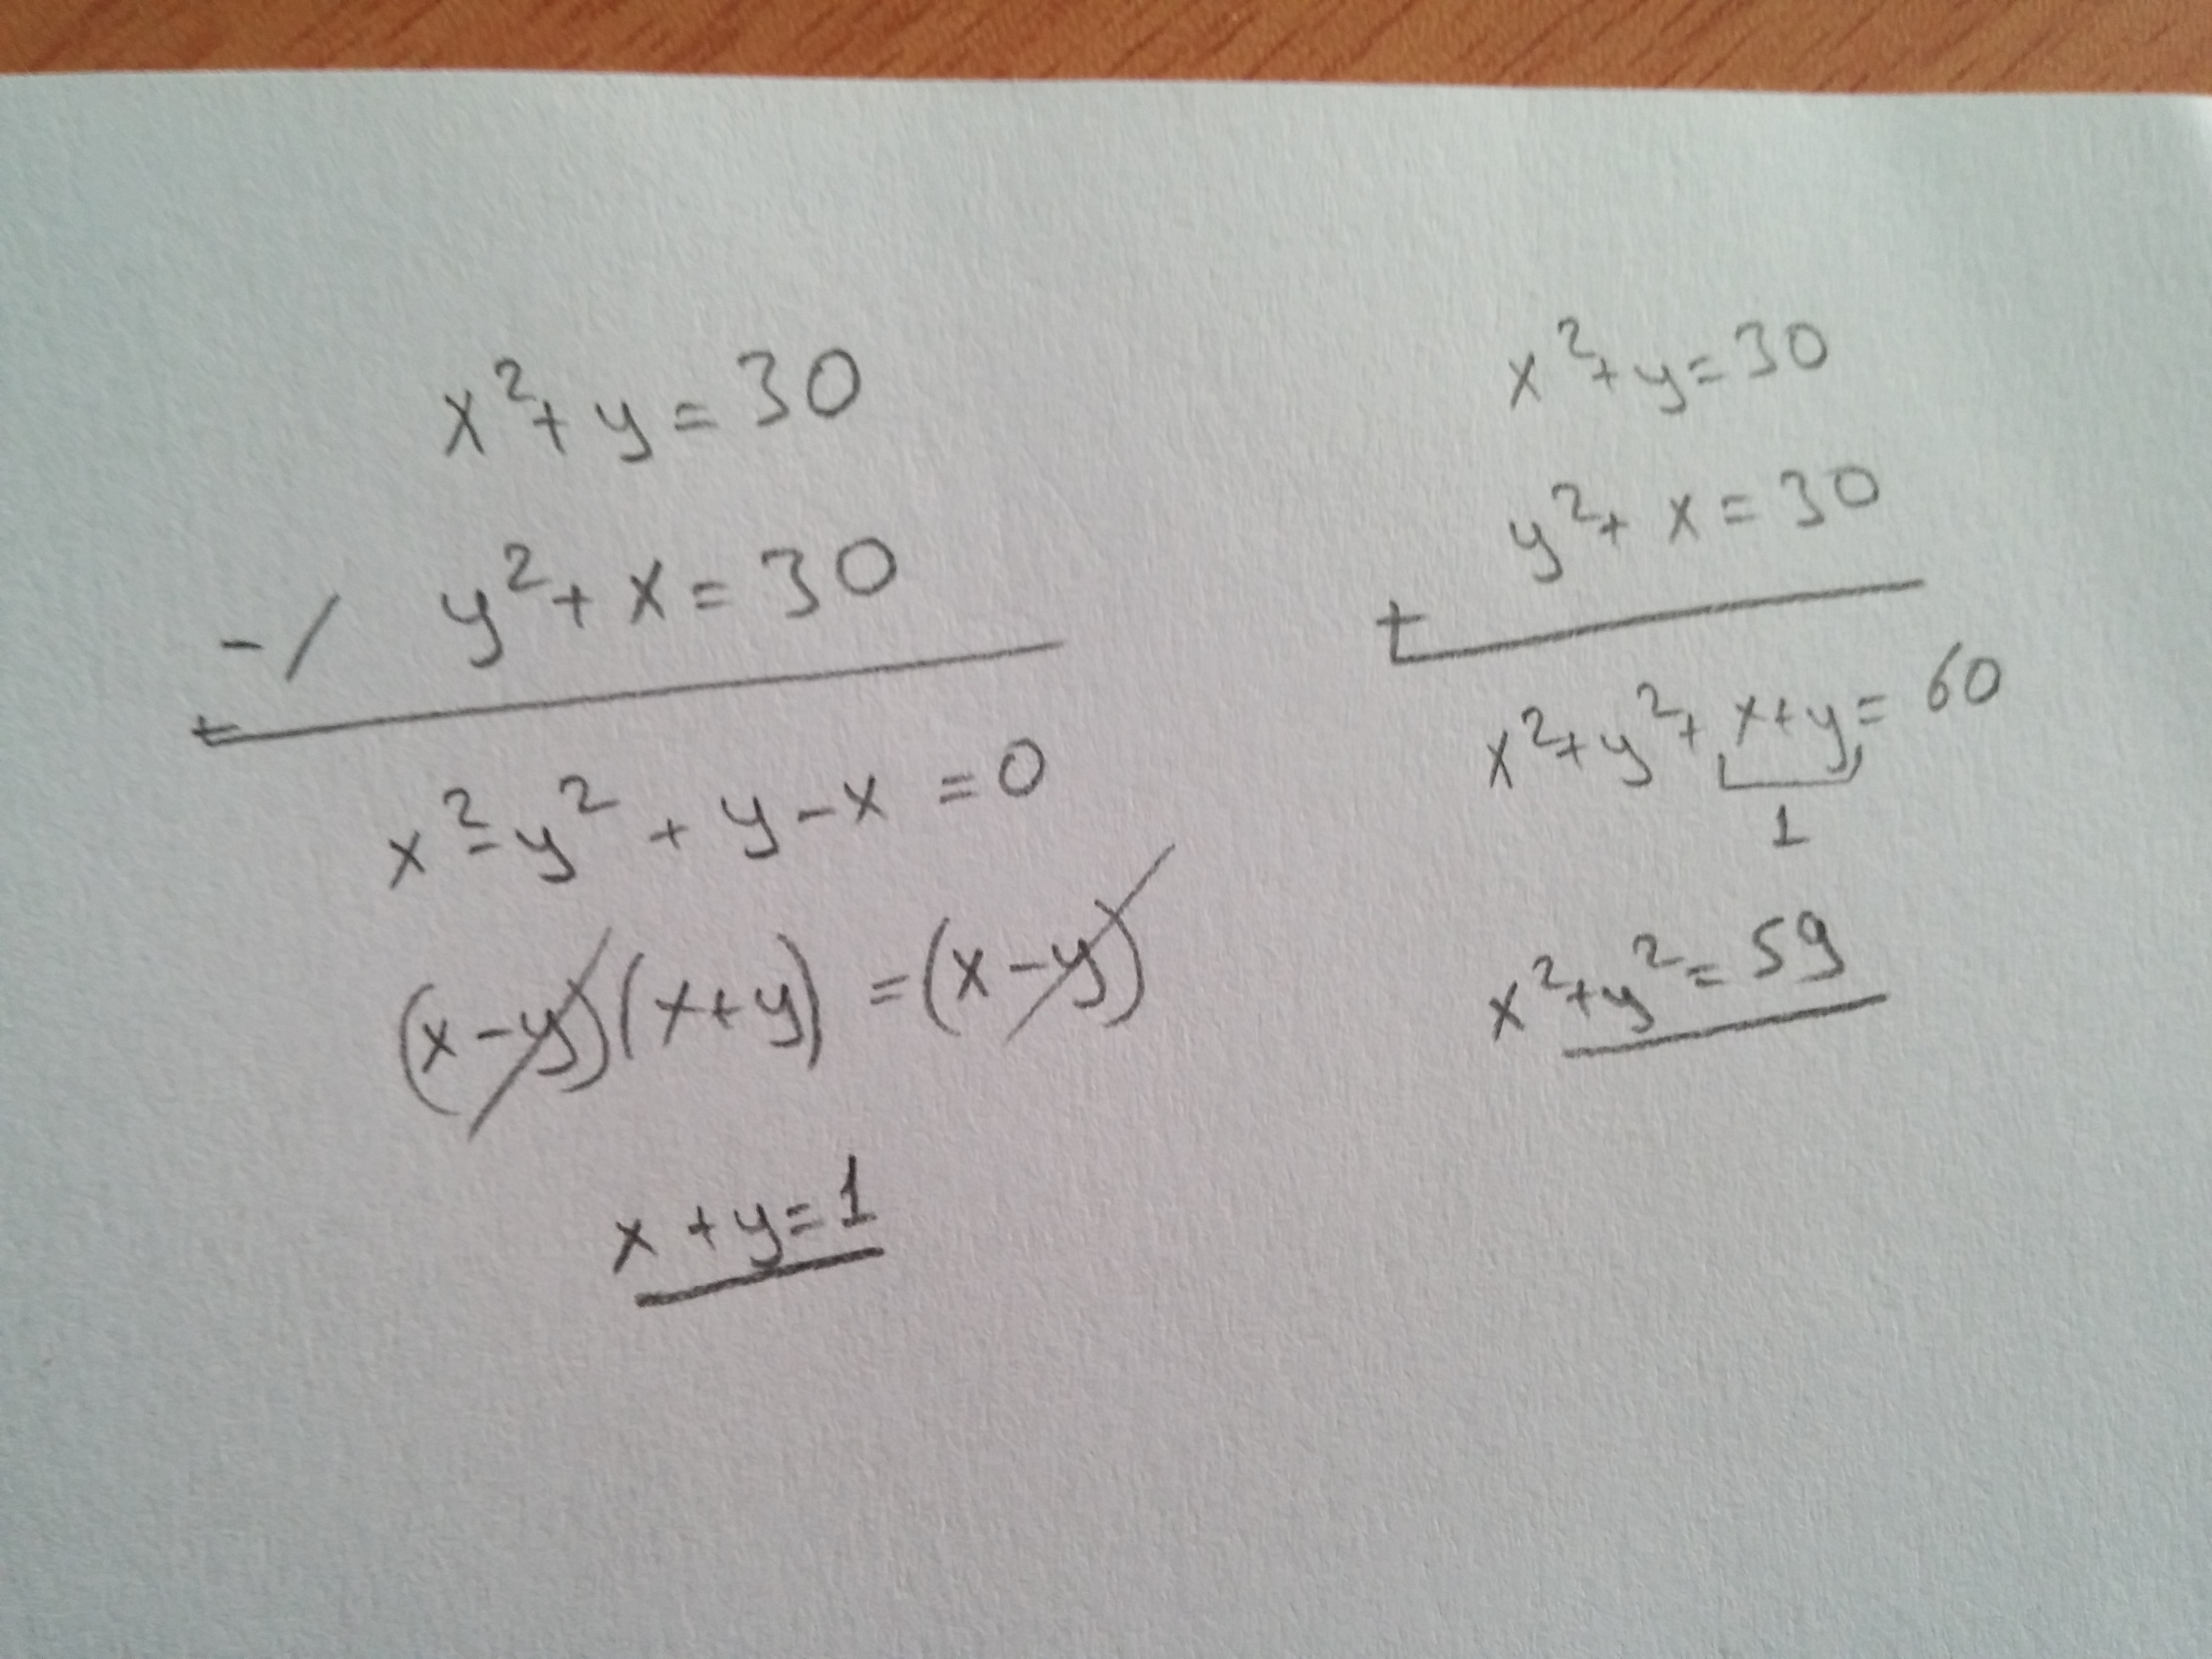 x²+y=30
-/ y²+x=30
+
x²-y²+y-x=0
(x-y)(x+y)=(x-y)
x+y=1
x²+y=30
y²+x=30
+
x²+y²+x+y=60
1
x²+y²=59